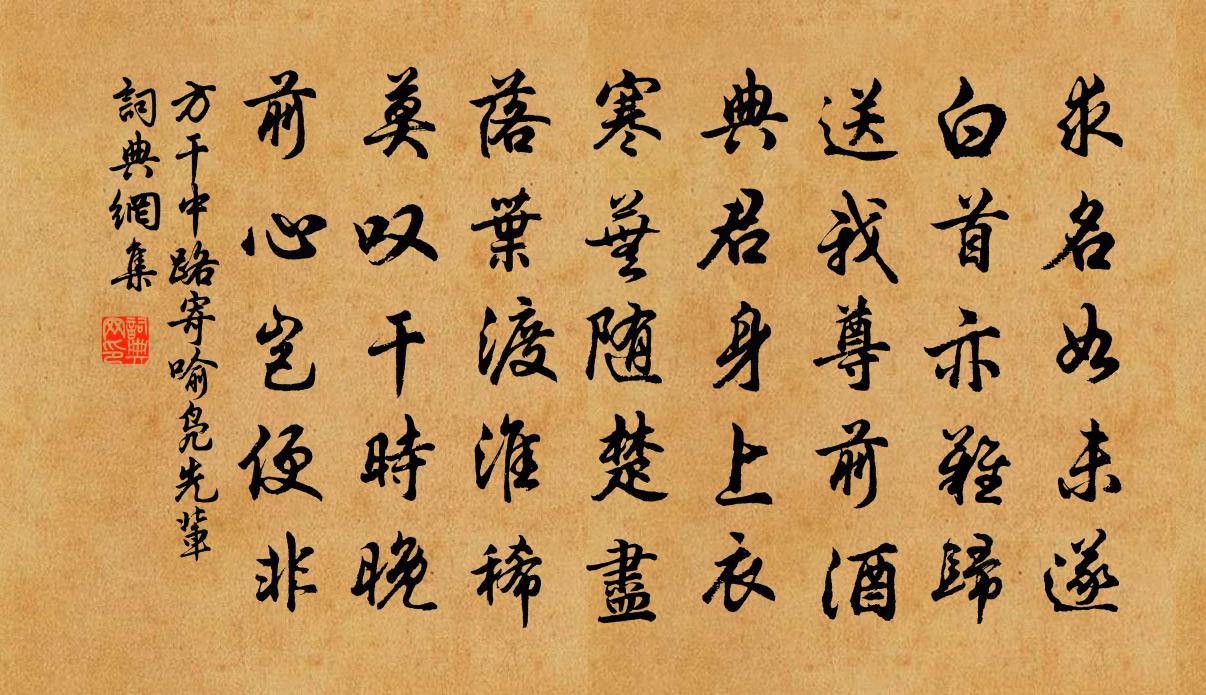 求名如未遂
白首亦難歸
送我尊前酒
典君身上衣
寒蕪隨楚盡
落葉渡淮稀
莫叹干時晚
前心豈便非
方干中路寄喻凫先輩
詞典網集
詞典网印